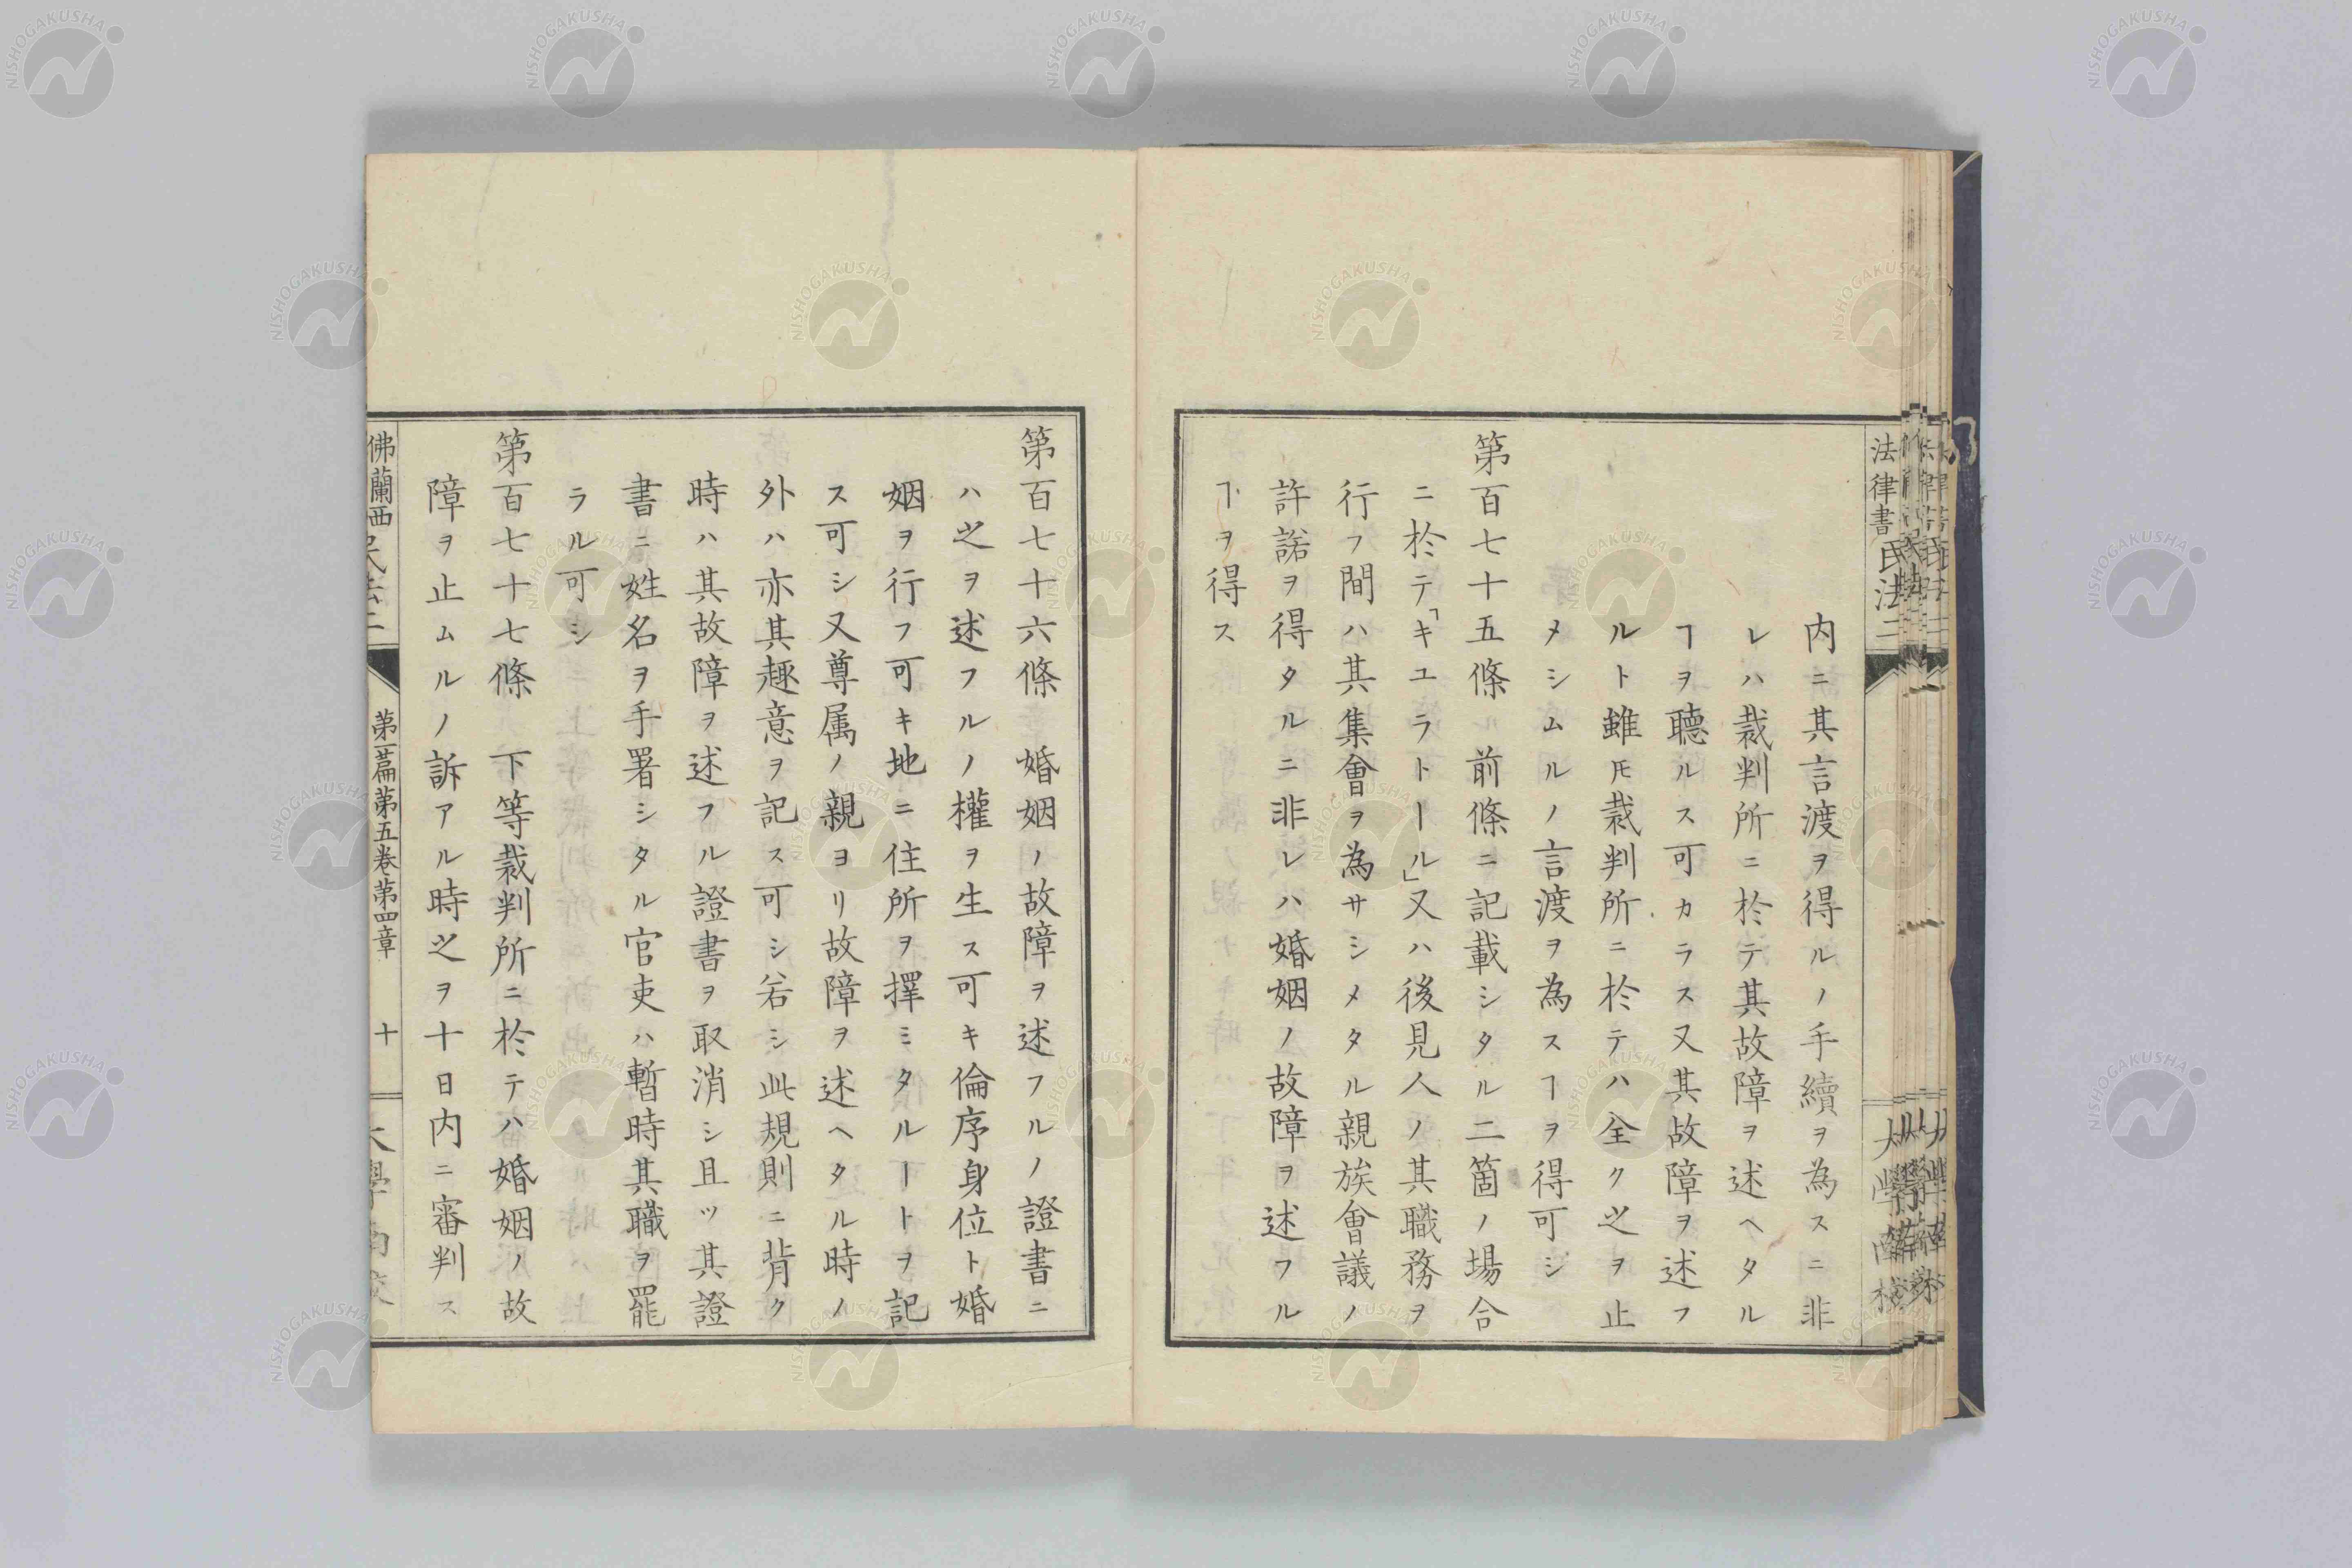 法律書民法二
内ニ其言渡ヲ得ルノ手續ヲ為スニ非
レハ裁判所ニ於テ其故障ヲ述ヘタル
ヿヲ聴ルス可カラス又其故障ヲ述フ
ルト雖𪜈裁判所ニ於テハ全ク之ヲ止
メシムルノ言渡ヲ為スヿヲ得可シ
第百七十五條 前條ニ記載シタル二箇ノ場合
ニ於テ「キユラトール」又ハ後見人ノ其職務ヲ
行フ間ハ其集會ヲ為サシメタル親族會議ノ
許諾ヲ得タルニ非レハ婚姻ノ故障ヲ述フル
ヿヲ得ス
第百七十六條 婚姻ノ故障ヲ述フルノ證書ニ
ハ之ヲ述フルノ權ヲ生ス可キ倫序身位ト婚
姻ヲ行フ可キ地ニ住所ヲ擇ミタルートヲ記
ス可シ又尊属ノ親ヨリ故障ヲ述ヘタル時ノ
外ハ亦其趣意ヲ記ス可シ若シ此規則ニ背ク
時ハ其故障ヲ述フル證書ヲ取消シ且ツ其證
書ニ姓名ヲ手署シタル官吏ハ暫時其職ヲ罷
ラル可シ
第百七十七條 下等裁判所ニ於テハ婚姻ノ故
障ヲ止ムルノ訴アル時之ヲ十日内ニ審判ス
佛蘭西 第一篇第五巻第四章 十
NISHOGAKUSHA